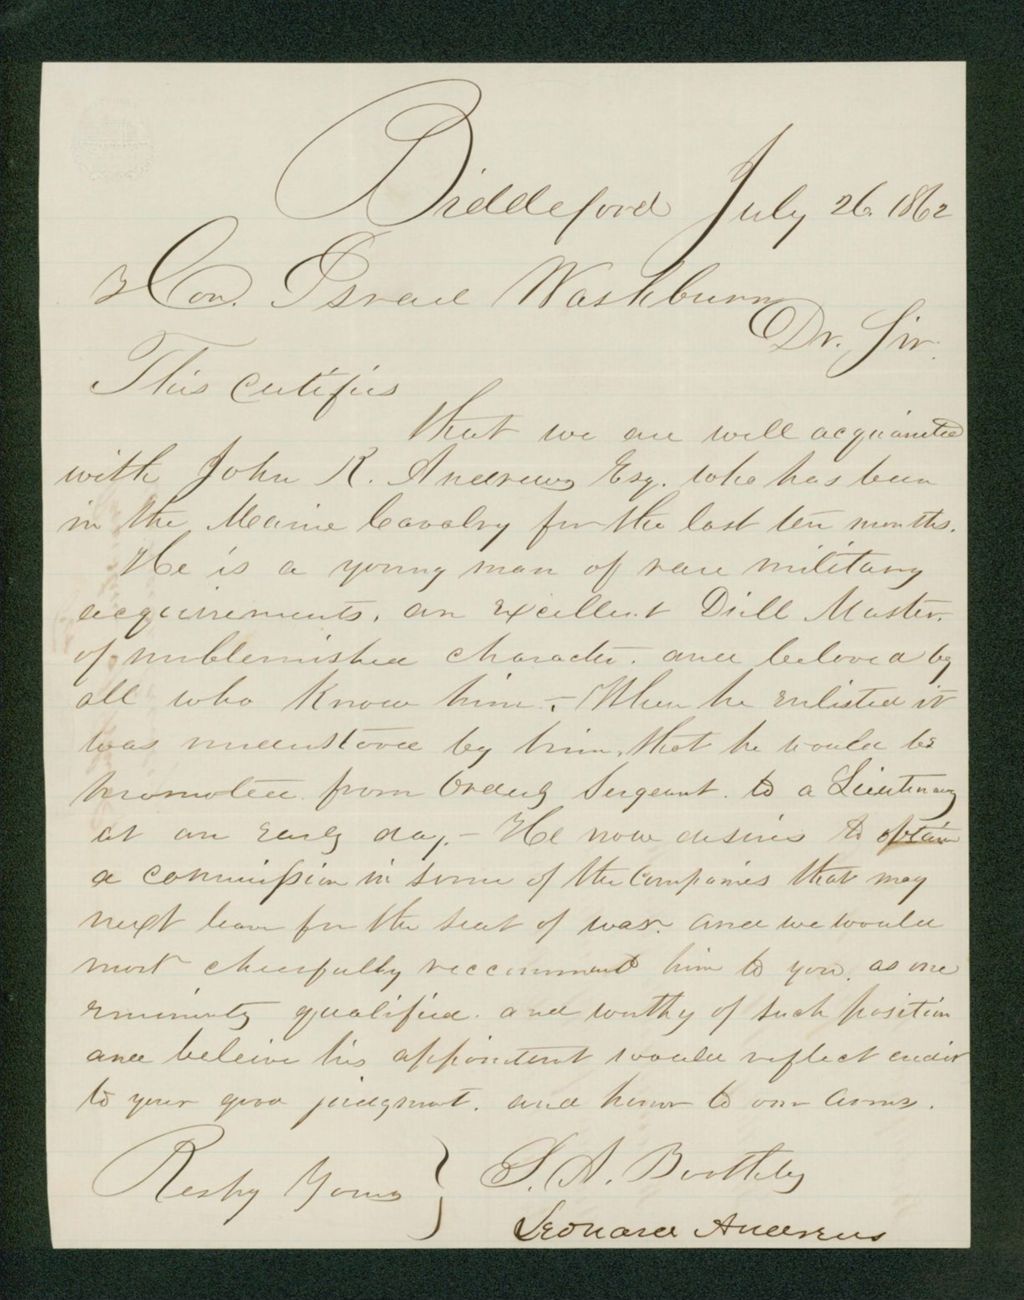 Biddeford July 26. 1862
Hon. Israel Washburn
Dr. Sir.
This certifies
that we are well acquainted
with John R. Andrews Esq. who has been
in the Maine Cavalry for the last ten months.
He is a young man of rare military
acquirements, an excellent Drill Master,
of unblemished character, and beloved by
all who know him. - When he enlisted it
was understood by him, that he would be
promoted from Orderly Sergeant. to a Lieutenancy
at an early day. - He now desires to obtain
a commission in some of the Companies that may
next leave for the seat of war. and we would
most cheerfully reccommend him to you, as one
eminently qualified. and worthy of such position
and beleive his appointent would reflect credit
to your good judgment. and honor to our arms.
Resply Yours } S. A. Boothby
Leonard Andrews